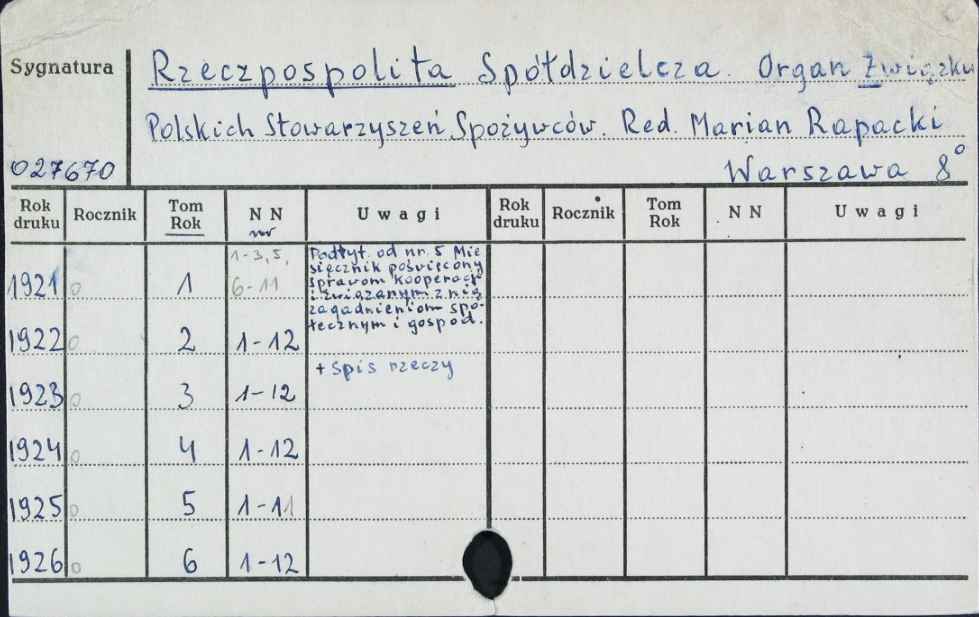 Sygnatura
Rzeczpospolita Spółdzielcza. Organ Związku
Polskich Stowarzyszeń Spożywców. Red. Marian Rapacki
027670
Warszawa 8°
Rok druku Rocznik Tom Rok N N Uwagi Rok druku Rocznik Tom Rok N N Uwagi
nr
1-3, 5,
Podtyt. od nr. 5 Mie
sięcznik poświęcony
sprawom kooperacji
i związanym z nią
zagadnieniom spo-
łecznym i gospod.
1921 0 1 6-11
1922 0 2 1-12
+ Spis rzeczy
1923 0 3 1-12
1924 0 4 1-12
1925 0 5 1-11
1926 0 6 1-12